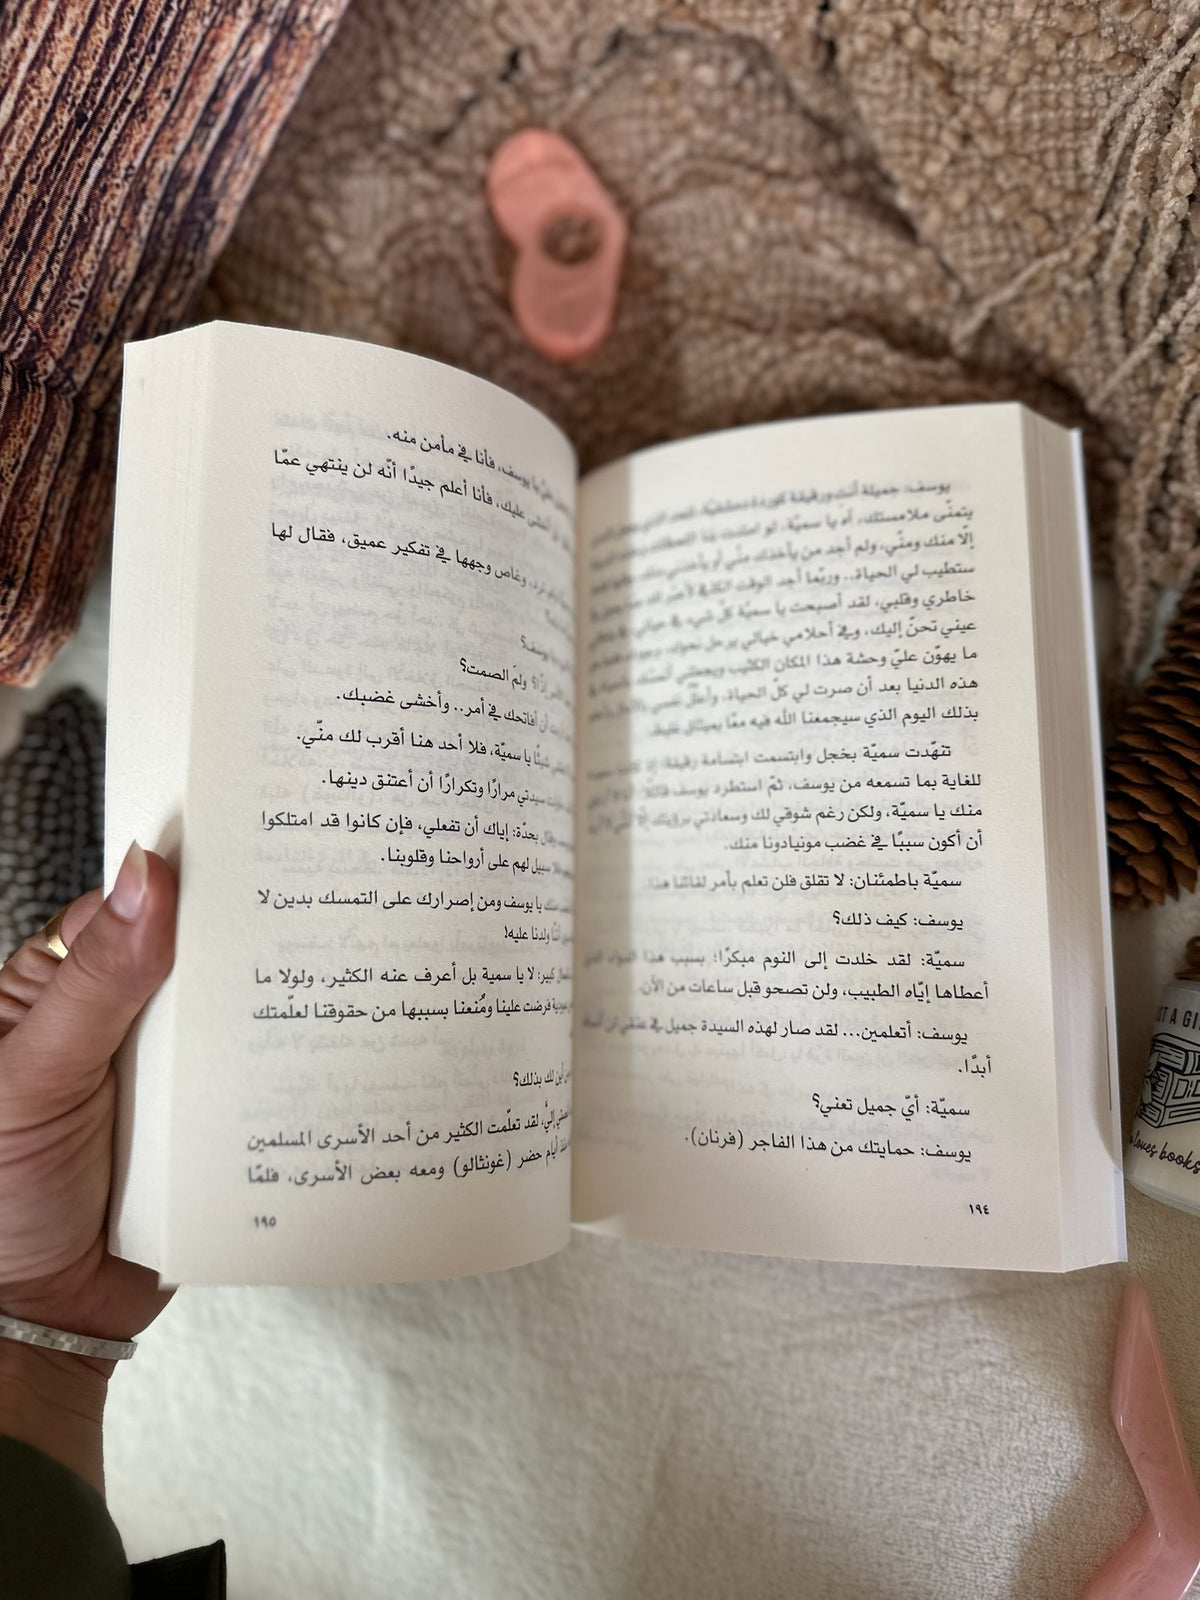 يوسف: جميلة أنت ورقيقة كوردة دمشقيّة،
يتمنّى ملامستك، آه يا سميّة، لو امتدت بنا اللحظات
إلّا منك ومنّي، ولم أجد من يأخذك منّي أو يأخذني منك،
ستطيب لي الحياة.. وربّما أجد الوقت الكافي لأعبّر لك عمّا
خاطري وقلبي، لقد أصبحت يا سميّة كلّ شيء في حياتي،
عيني تحنّ إليك، وفي أحلامي خيالي يرحل نحوك،
ما يهوّن عليّ وحشة هذا المكان الكئيب ويجعلني
هذه الدنيا بعد أن صرت لي كلّ الحياة، وأعلّل نفسي
بذلك اليوم الذي سيجمعنا الله فيه معًا بميثاق غليظ.
تنهّدت سميّة بخجل وابتسمت ابتسامة رقيقة؛ إذ كانت
للغاية بما تسمعه من يوسف، ثمّ استطرد يوسف قائلًا: أنا لا
منك يا سميّة، ولكن رغم شوقي لك وسعادتي برؤيتك إلّا أنّي لا
أن أكون سببًا في غضب مونيادونا منك.
سميّة باطمئنان: لا تقلق فلن تعلم بأمر لقائنا هذا.
يوسف: كيف ذلك؟
سميّة: لقد خلدت إلى النوم مبكرًا؛ بسبب هذا الدواء الذي
أعطاها إيّاه الطبيب، ولن تصحو قبل ساعات من الآن.
يوسف: أتعلمين... لقد صار لهذه السيدة جميل في عنقي لن
أبدًا.
سميّة: أيّ جميل تعني؟
يوسف: حمايتك من هذا الفاجر (فرنان).
١٩٤
يا يوسف، فأنا في مأمن منه.
عليك، فأنا أعلم جيدًا أنّه لن ينتهي عمّا
وغاص وجهها في تفكير عميق، فقال لها
يوسف؟
إذًا؟ ولمَ الصمت؟
أن أفاتحك في أمر.. وأخشى غضبك.
شيئًا يا سميّة، فلا أحد هنا أقرب لك منّي.
سيدتي مرارًا وتكرارًا أن أعتنق دينها.
وقال بحدّة: إياك أن تفعلي، فإن كانوا قد امتلكوا
سبيل لهم على أرواحنا وقلوبنا.
منك يا يوسف ومن إصرارك على التمسك بدين لا
أنّنا ولدنا عليه!
كبير: لا يا سمية بل أعرف عنه الكثير، ولولا ما
فرضت علينا ومُنعنا بسببها من حقوقنا لعلّمتك
أين لك بذلك؟
إليّ، لقد تعلّمت الكثير من أحد الأسرى المسلمين
أيام حضر (غونثالو) ومعه بعض الأسرى، فلمّا
١٩٥
JUST A GI
loves books